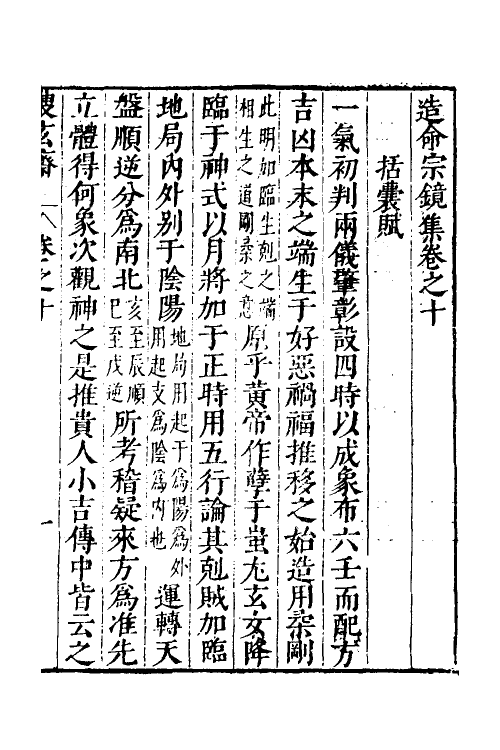 造命宗鏡集卷之十
括囊賦
一氣初判兩儀肇彰設四時以成象布六壬而配方
吉凶本末之端生于好惡禍福推移之始造用柔剛
此明加臨生剋之端
相生之道剛柔之意
原乎黄帝作孽于蚩尤玄女降
臨于神式以月將加于正時用五行論其剋賊加臨
地局内外别于陰陽
地局用起干爲陽爲外
用起支爲陰爲内也
運轉天
盤順逆分爲南北
亥至辰順
巳至戌逆
所考稽疑來方爲准先
立體得何象次觀神之是推貴人小吉傳中皆云之
玄齋
卷之十
一